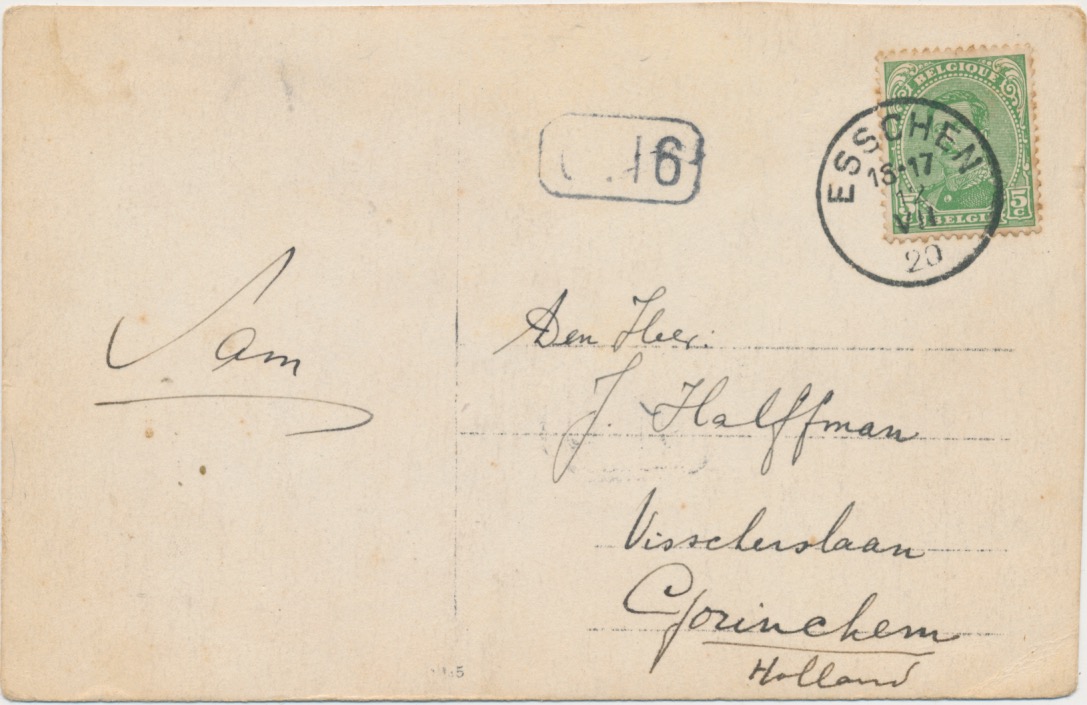 BELGIQUE
5c
BELGIË
ESSCHEN
VII
20
6
Sam
Den Heer:
J. Halffman
Visscherslaan
Gorinchem
Holland